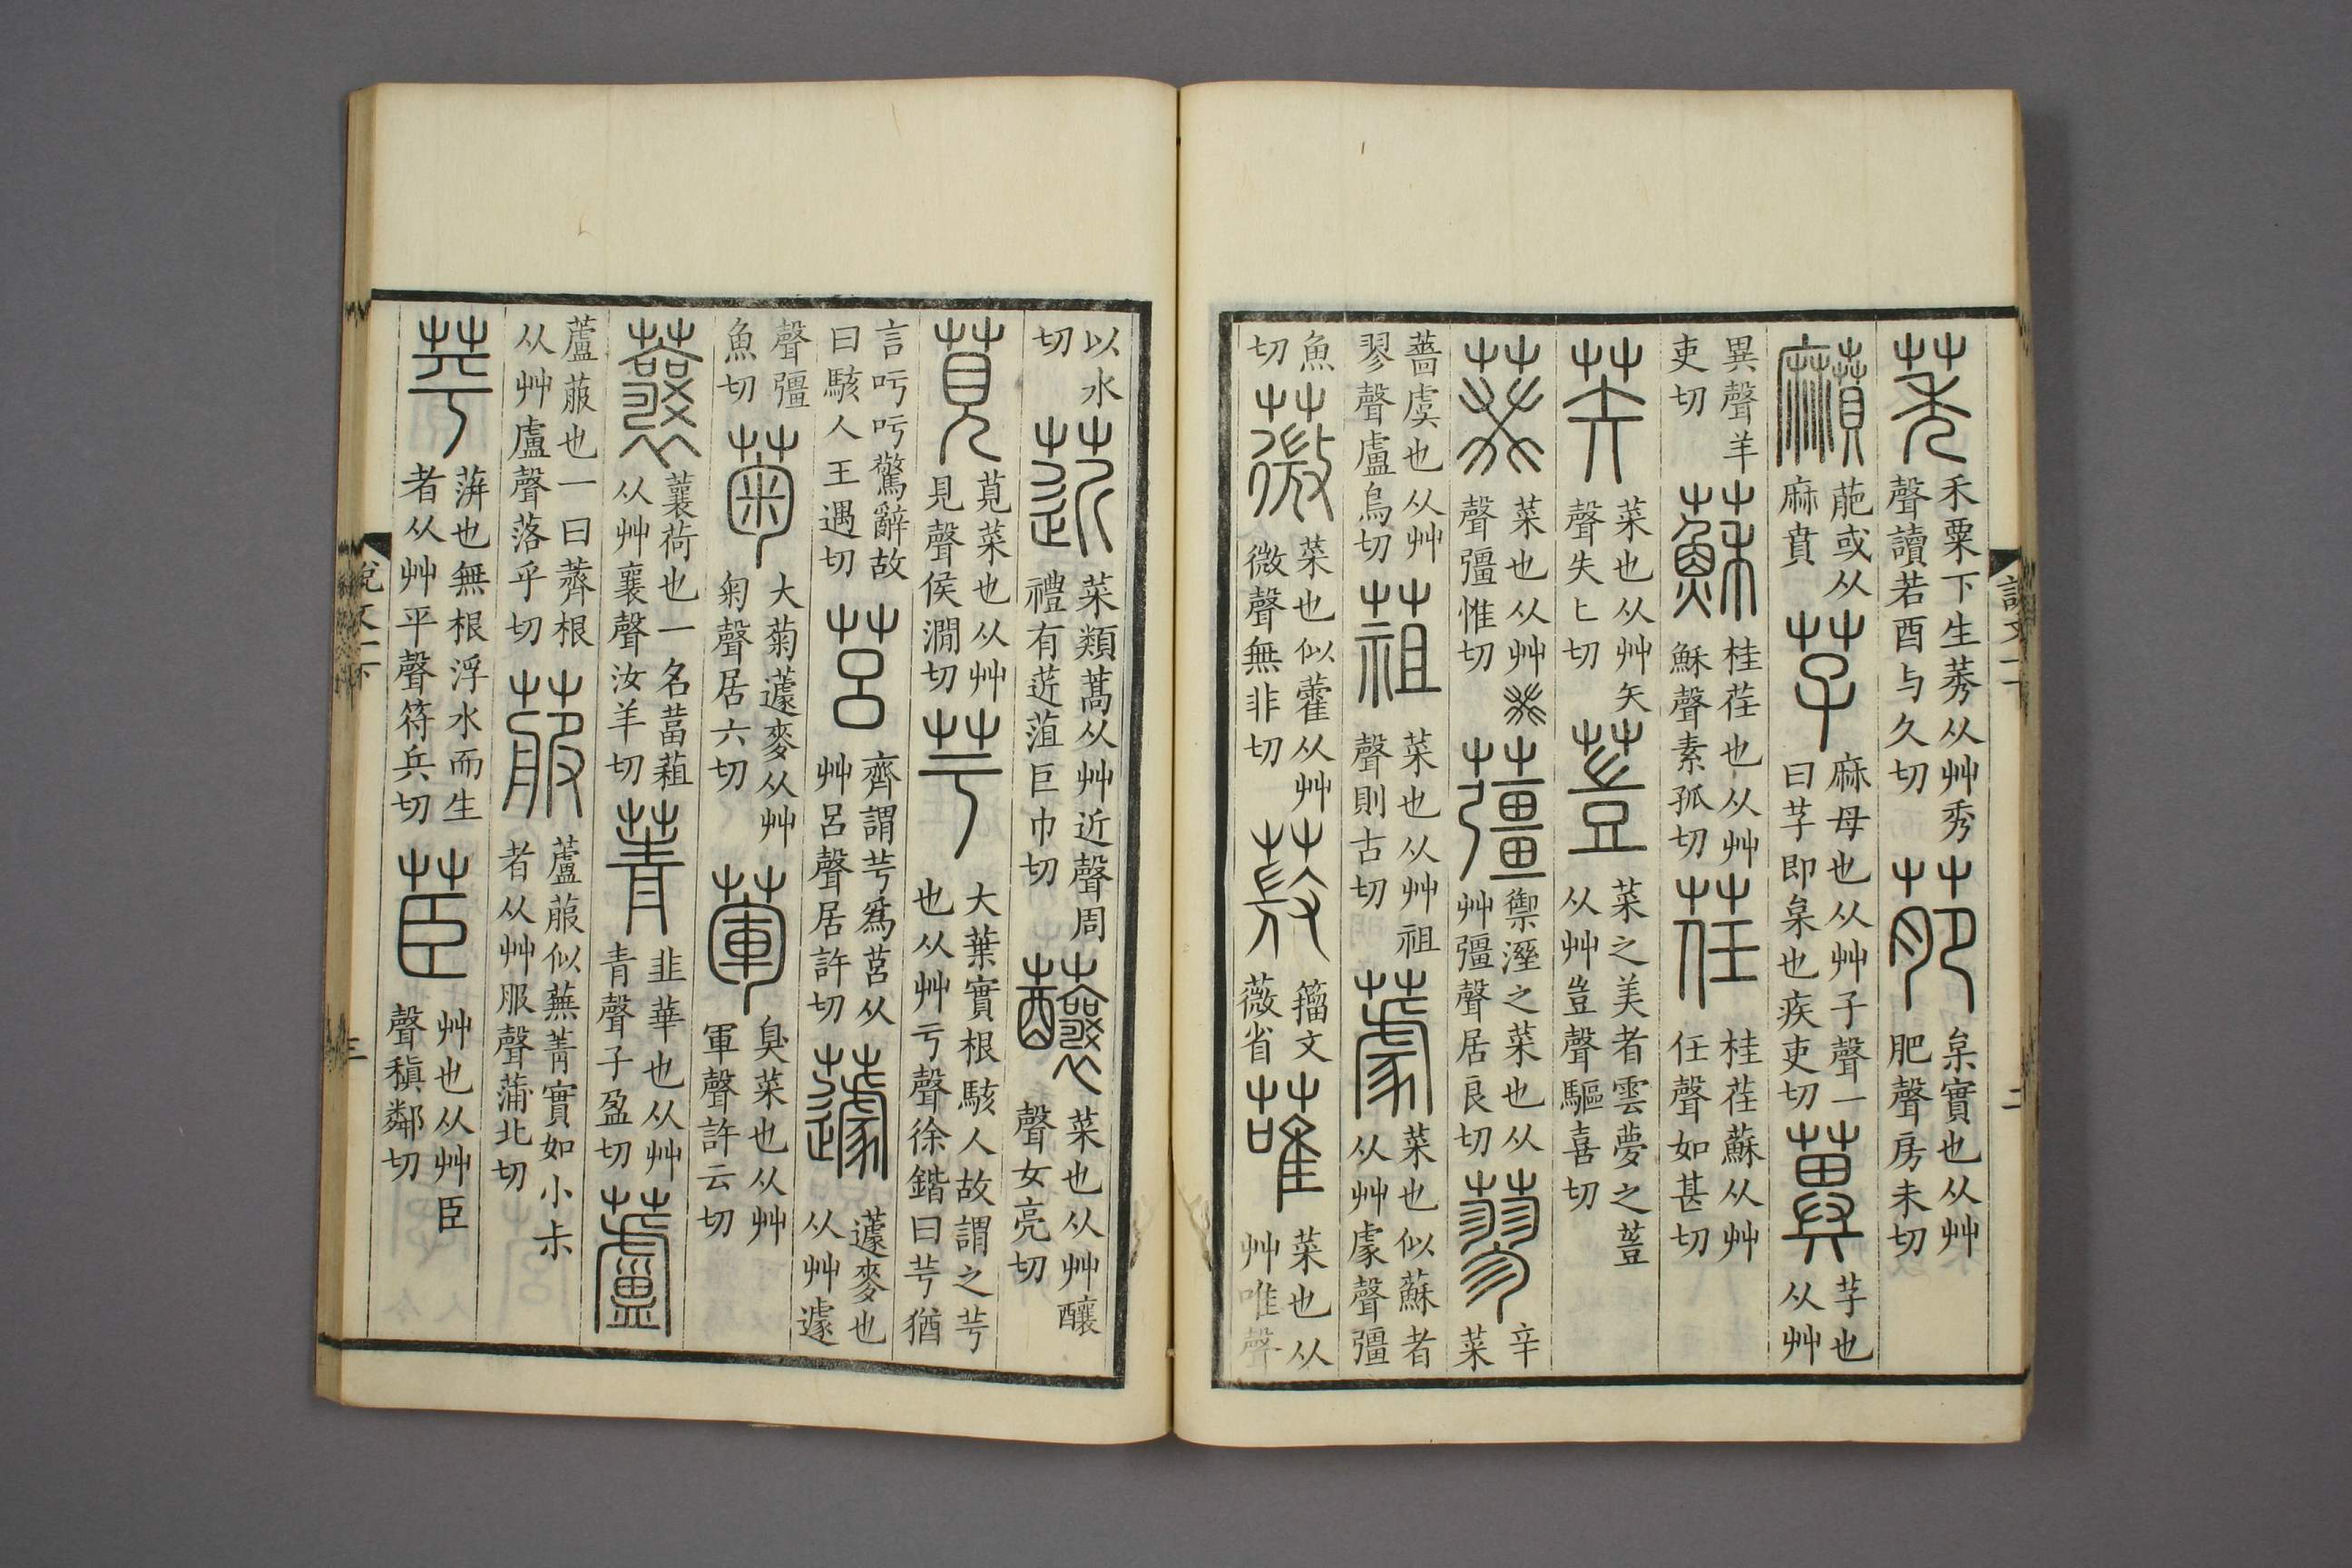 莠禾粟下生莠从艸秀聲讀若酉与久切萉枲實也从艸肥聲房未切
䵨萉或从麻賁芓麻母也从艸子聲一曰芓即枲也疾吏切𦳝芓也从艸
異聲羊吏切蘇桂荏也从艸穌聲素孤切荏桂荏蘇从艸任聲如甚切
𦬊菜也从艸矢聲失匕切䔇菜之美者雲夢之䔇从艸豈聲驅喜切
葵菜也从艸癸聲彊惟切䕬禦溼之菜也从艸彊聲居良切蓼辛菜
薔虞也从艸翏聲盧鳥切蒩菜也从艸祖聲則古切䕙菜也似蘇者从艸豦聲彊
魚切薇菜也似藿从艸微聲無非切𦼬籒文薇省蓶菜也从艸唯聲
說文一下 二
以水切菦菜類蒿从艸近聲周禮有菦菹巨巾切蘸菜也从艸釀聲女亮切
莧莧菜也从艸見聲侯澗切芌大葉實根駭人故謂之芌也从艸亏聲徐鍇曰芌猶
言吁吁驚辭故曰駭人王遇切莒齊謂芌爲莒从艸呂聲居許切蘧蘧麥也从艸遽
聲彊魚切菊大菊蘧麥从艸匊聲居六切葷臭菜也从艸軍聲許云切
蘘蘘荷也一名葍蒩从艸襄聲汝羊切菁韭華也从艸青聲子盈切蘆
蘆菔也一曰薺根从艸盧聲落乎切菔蘆菔似蕪菁實如小尗者从艸服聲蒲北切
苹蓱也無根浮水而生者从艸平聲符兵切茞艸也从艸臣聲稹鄰切
說文一下 三